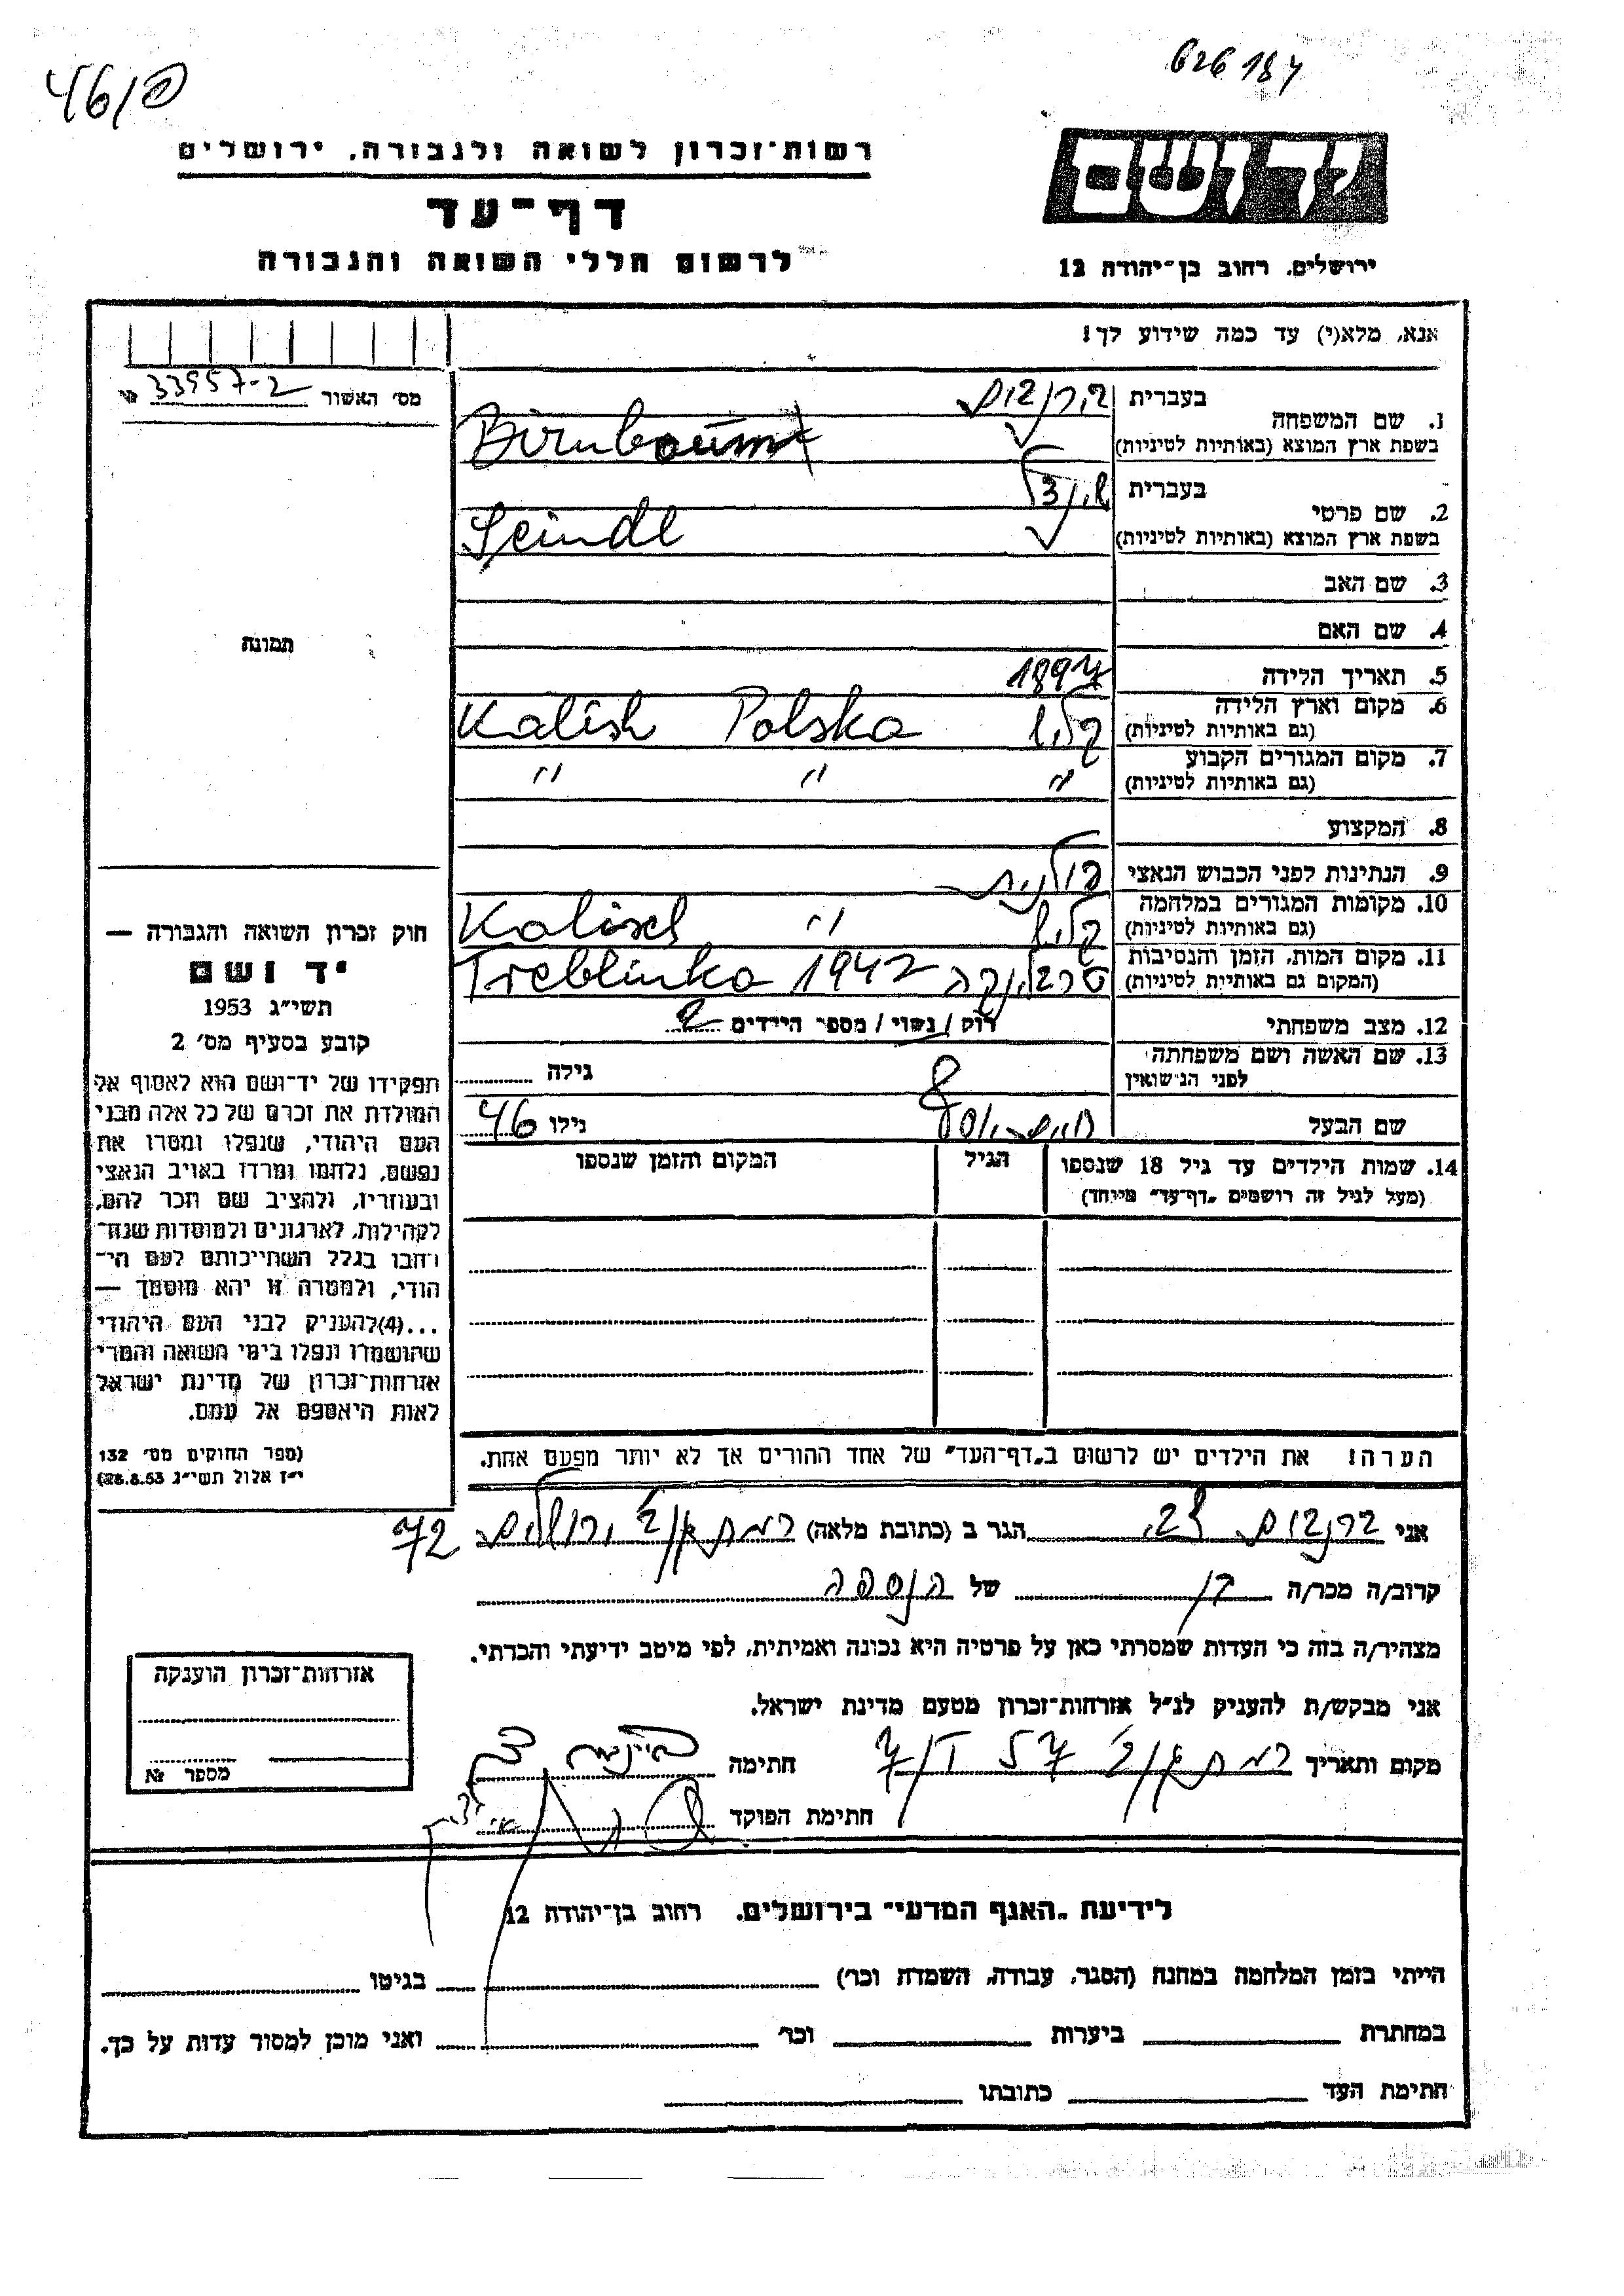 626184
46/פ
יד ושם
רשות־זכרון לשואה ולגבורה, ירושלים
דף־עד
לרשום חללי השואה והגבורה
ירושלים, רחוב בן־יהודה 12
אנא, מלא(י) עד כמה שידוע לך!
1. שם המשפחה
בעברית בירנבוים
בשפת ארץ המוצא (באותיות לטיניות) Birnbaum
מס׳ האשור 33957-2 №
2. שם פרטי
בעברית שינדל
בשפת ארץ המוצא (באותיות לטיניות) Scindl
3. שם האב
4. שם האם
תמונה
5. תאריך הלידה 1897
6. מקום וארץ הלידה קליש Kalish Polska
(גם באותיות לטיניות)
7. מקום המגורים הקבוע " " "
(גם באותיות לטיניות)
8. המקצוע
9. הנתינות לפני הכבוש הנאצי פולנית
10. מקומות המגורים במלחמה קליש " Kalisch
(גם באותיות לטיניות)
11. מקום המות, הזמן והנסיבות טרבלינקה Treblinka 1942
(המקום גם באותיות לטיניות)
12. מצב משפחתי רוק / נשוי / מספר הילדים 2
13. שם האשה ושם משפחתה גילה
לפני הנישואין
שם הבעל חיים-יוסף גילו 46
14. שמות הילדים עד גיל 18 שנספו הגיל המקום והזמן שנספו
(מעל לגיל זה רושמים „דף־עד” מיוחד)
הערה! את הילדים יש לרשום ב„דף־העד” של אחד ההורים אך לא יותר מפעם אחת.
חוק זכרון השואה והגבורה —
יד ושם
תשי״ג 1953
קובע בסעיף מס׳ 2
תפקידו של יד־ושם הוא לאסוף אל
המולדת את זכרם של כל אלה מבני
העם היהודי, שנפלו ומסרו את
נפשם, נלחמו ומרדו באויב הנאצי
ובעוזריו, ולהציב שם וזכר להם,
לקהילות, לארגונים ולמוסדות שנח־
רבו בגלל השתייכותם לעם הי־
הודי, ולמטרה זו יהא מוסמך —
...(4)להעניק לבני העם היהודי
שהושמדו ונפלו בימי השואה והמרי
אזרחות־זכרון של מדינת ישראל
לאות היאספם אל עמם.
(ספר החוקים מס׳ 132
י״ז אלול תשי״ג 28.8.53)
אני בירנבוים צבי הגר ב (כתובת מלאה) רמת גן ירושלים 72
קרוב/ה מכר/ה בן של הנספה
מצהיר/ה בזה כי העדות שמסרתי כאן על פרטיה היא נכונה ואמיתית, לפי מיטב ידיעתי והכרתי.
אני מבקש/ת להעניק לנ״ל אזרחות־זכרון מטעם מדינת ישראל.
מקום ותאריך רמת גן חתימה
חתימת הפוקד
אזרחות־זכרון הוענקה
מספר №
לידיעת „האגף המדעי” בירושלים, רחוב בן־יהודה 12
הייתי בזמן המלחמה במחנה (הסגר, עבודה, השמדה וכו׳) בגיטו
במחתרת ביערות וכו׳ ואני מוכן למסור עדות על כך.
חתימת העד כתובתו